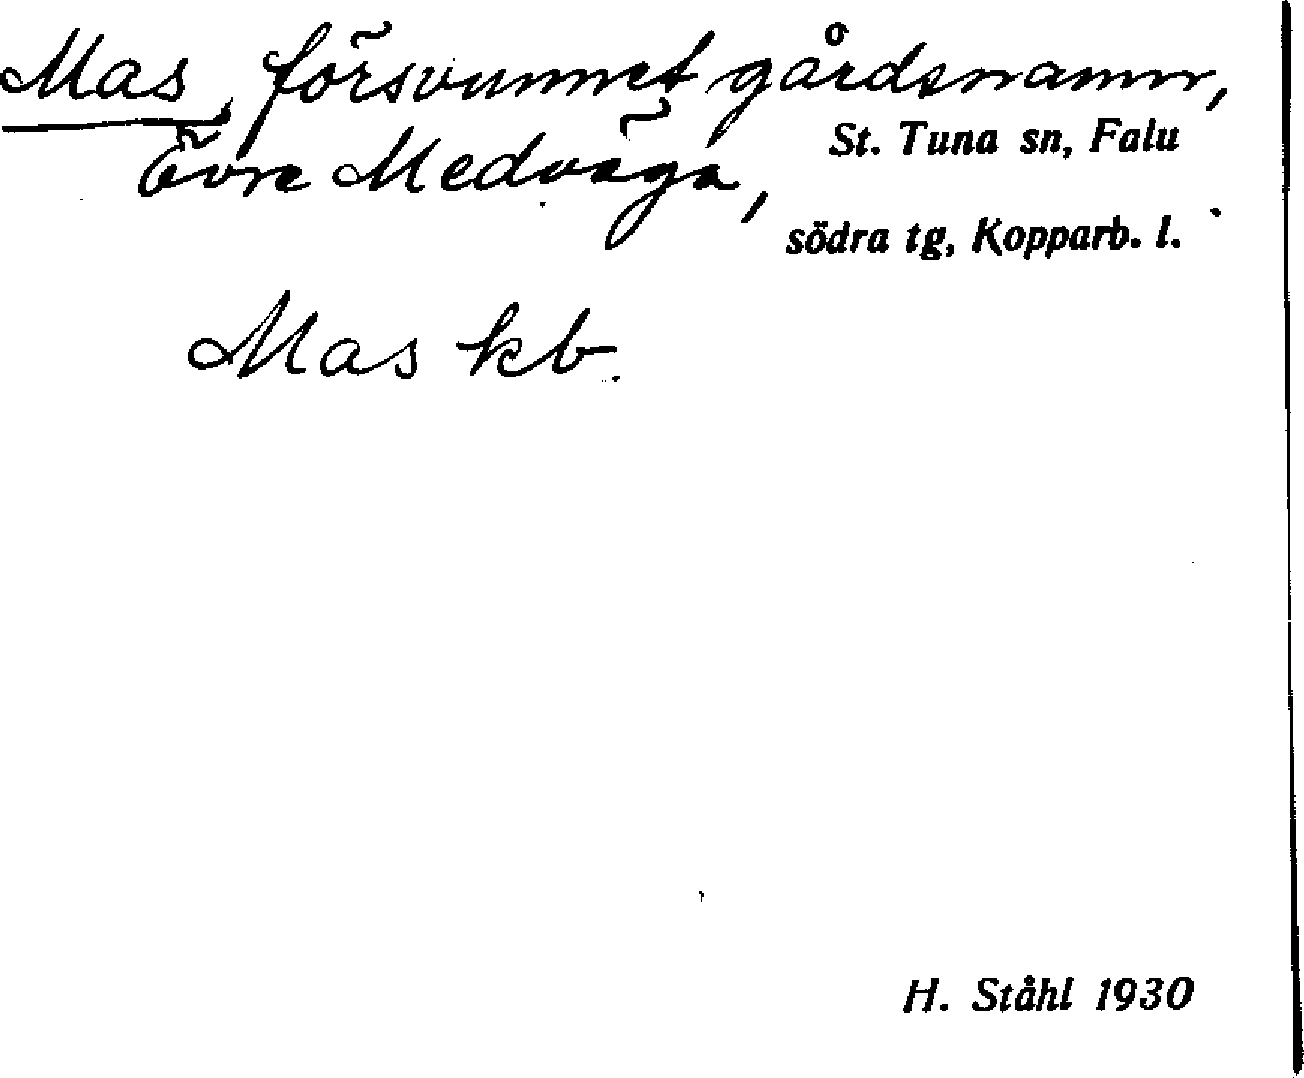 Mas, försvunnet gårdsnamn,
Övre Medväga,
St. Tuna sn, Falu
södra tg, Kopparb. l.
Mas kb.
H. Ståhl 1930